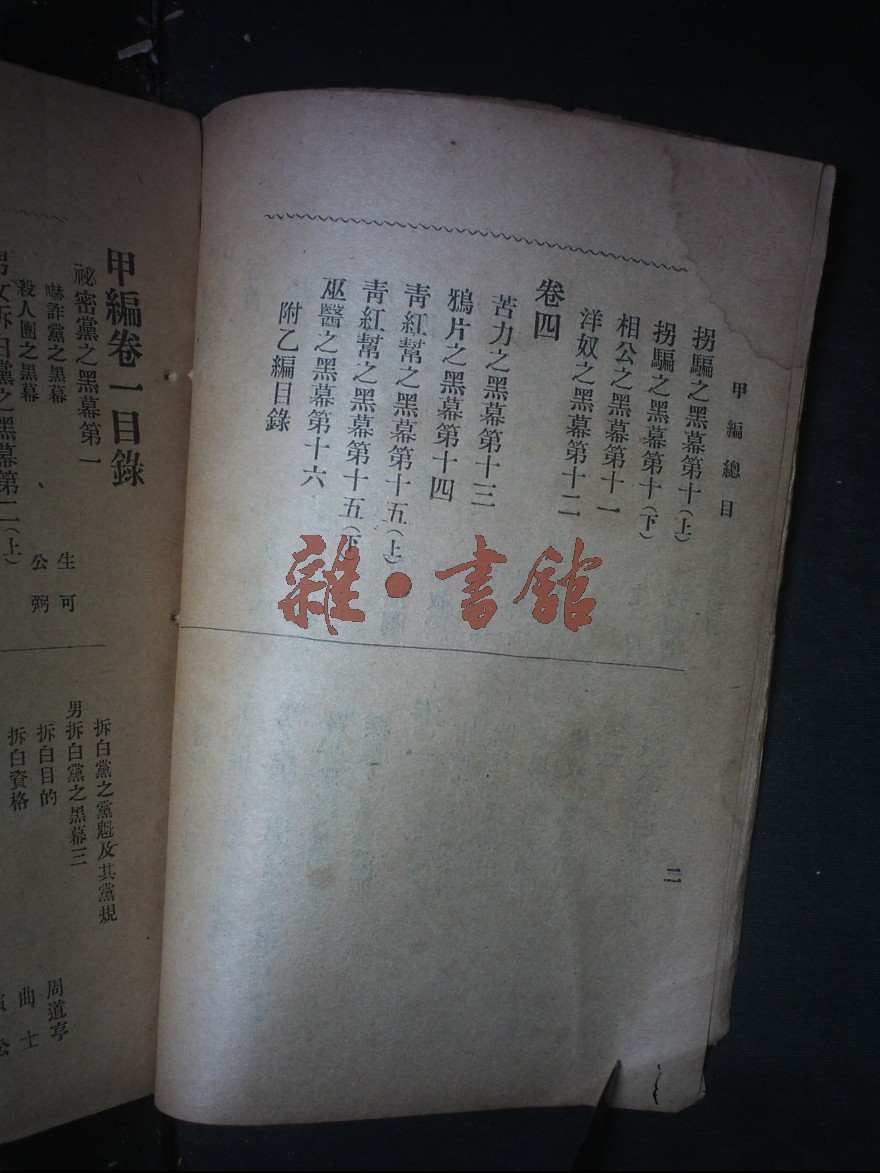 甲編總目
拐騙之黑幕第十(上)
拐騙之黑幕第十(下)
相公之黑幕第十一
洋奴之黑幕第十二
卷四
苦力之黑幕第十三
鴉片之黑幕第十四
青紅幫之黑幕第十五(上)
青紅幫之黑幕第十五(下)
巫醫之黑幕第十六
附乙編目錄
二
雜·書館
甲編卷一目錄
祕密黨之黑幕第一
嚇詐黨之黑幕 生可
殺人團之黑幕 公弼
男女拆白黨之黑幕第二(上)
拆白黨之黨魁及其黨規
男拆白黨之黑幕三 周道亭
拆白目的 曲士
拆白資格